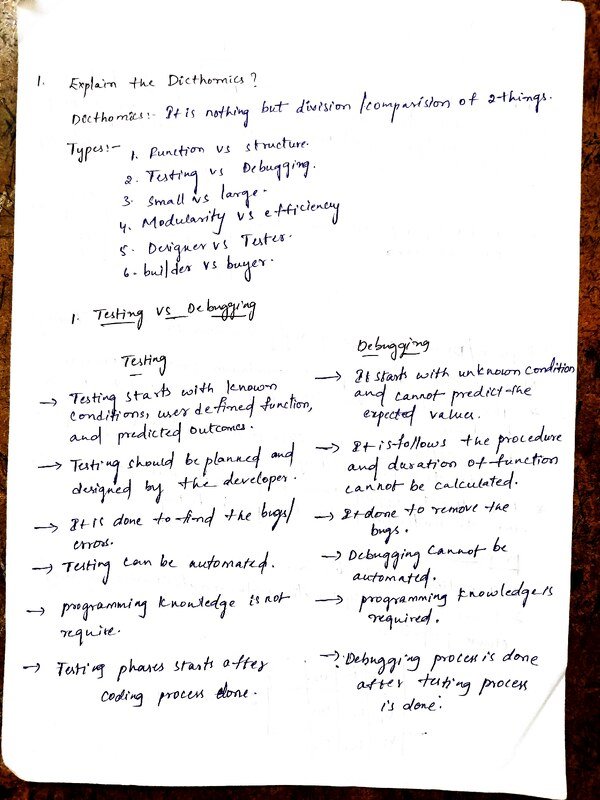 1. Explain the Dicthomics?
Dicthomics:- It is nothing but division/comparision of 2-things.
Types:- 1. Function vs structure.
2. Testing vs Debugging.
3. Small vs large.
4. Modularity vs efficiency
5. Designer vs Tester.
6. builder vs buyer.
1. Testing vs Debugging
Testing
→ Testing starts with known
conditions, user defined function,
and predicted outcomes.
→ Testing should be planned and
designed by the developer.
→ It is done to find the bugs/
errors.
→ Testing can be automated.
→ programming knowledge is not
require.
→ Testing phases starts after
coding process done.
Debugging
→ It starts with unknown condition
and cannot predict the
expected values.
→ It is follows the procedure
and duration of function
cannot be calculated.
→ It done to remove the
bugs.
→ Debugging cannot be
automated.
→ programming knowledge is
required.
→ Debugging process is done
after testing process
is done.